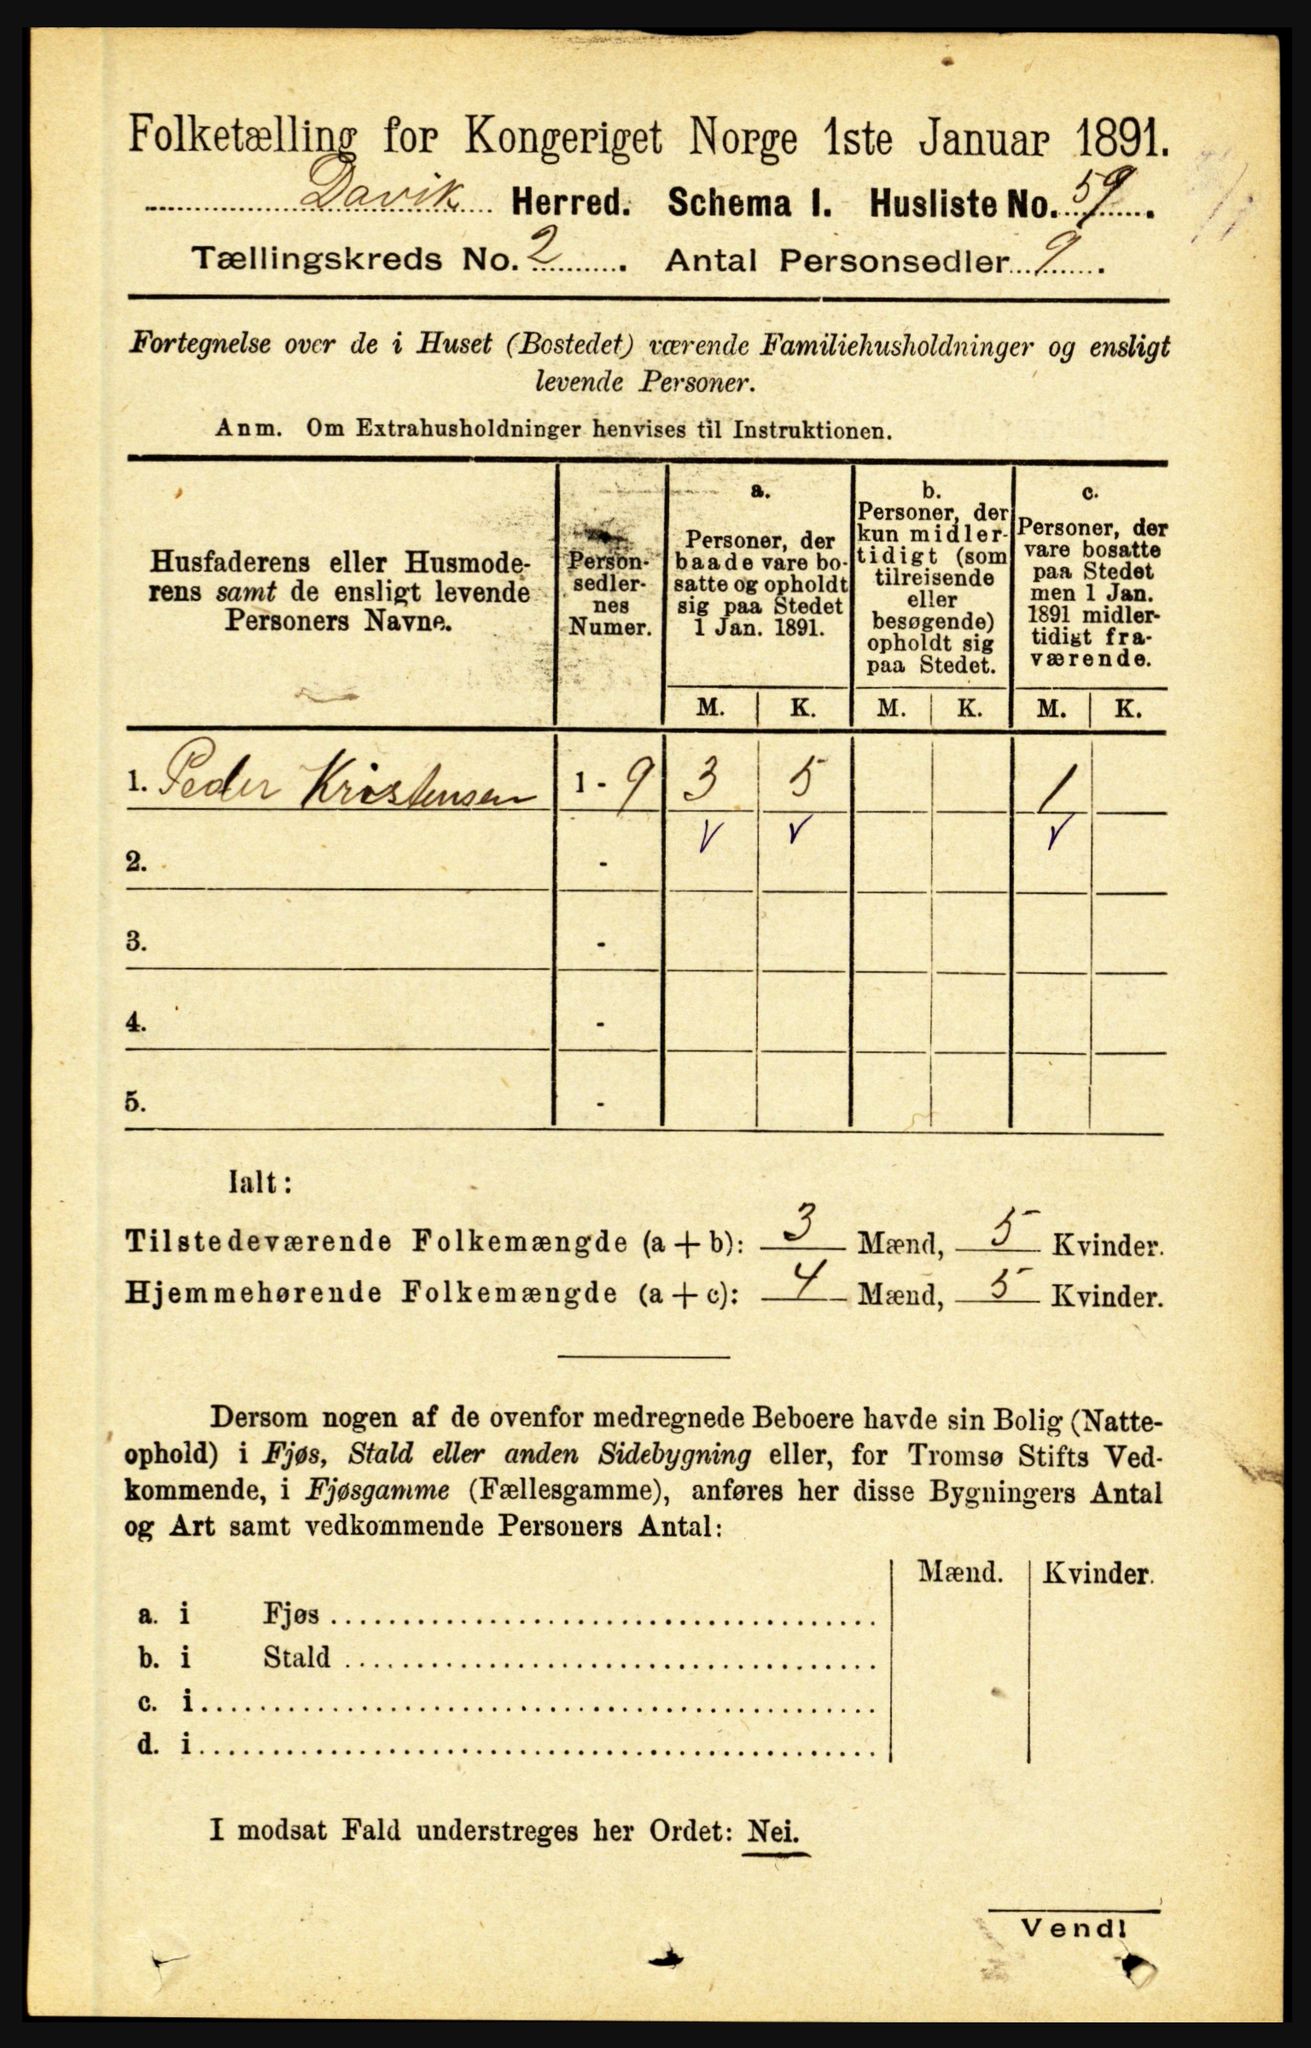 Folketælling for Kongeriget Norge 1ste Januar 1891.
Davik Herred. Schema I. Husliste No. 59.
Tællingskreds No. 2. Antal Personsedler 9.
Fortegnelse over de i Huset (Bostedet) værende Familiehusholdninger og ensligt
levende Personer.
Anm. Om Extrahusholdninger henvises til Instruktionen.
Husfaderens eller Husmode-
rens samt de ensligt levende
Personers Navne.
Person-
sedler-
nes
Numer.
a.
Personer, der
baade vare bo-
satte og opholdt
sig paa Stedet
1 Jan. 1891.
b.
Personer, der
kun midler-
tidigt (som
tilreisende
eller
besøgende)
opholdt sig
paa Stedet.
c.
Personer, der
vare bosatte
paa Stedet
men 1 Jan.
1891 midler-
tidigt fra-
værende.
M. K. M. K. M. K.
1. Peder Kristensen 1 - 9 3 5 1
2. -
3. -
4. -
5. -
Ialt:
Tilstedeværende Folkemængde (a + b): 3 Mænd, 5 Kvinder.
Hjemmehørende Folkemængde (a + c): 4 Mænd, 5 Kvinder.
Dersom nogen af de ovenfor medregnede Beboere havde sin Bolig (Natte-
ophold) i Fjøs, Stald eller anden Sidebygning eller, for Tromsø Stifts Ved-
kommende, i Fjøsgamme (Fællesgamme), anføres her disse Bygningers Antal
og Art samt vedkommende Personers Antal:
Mænd. Kvinder.
a. i Fjøs
b. i Stald
c. i
d. i
I modsat Fald understreges her Ordet: Nei.
Vend!